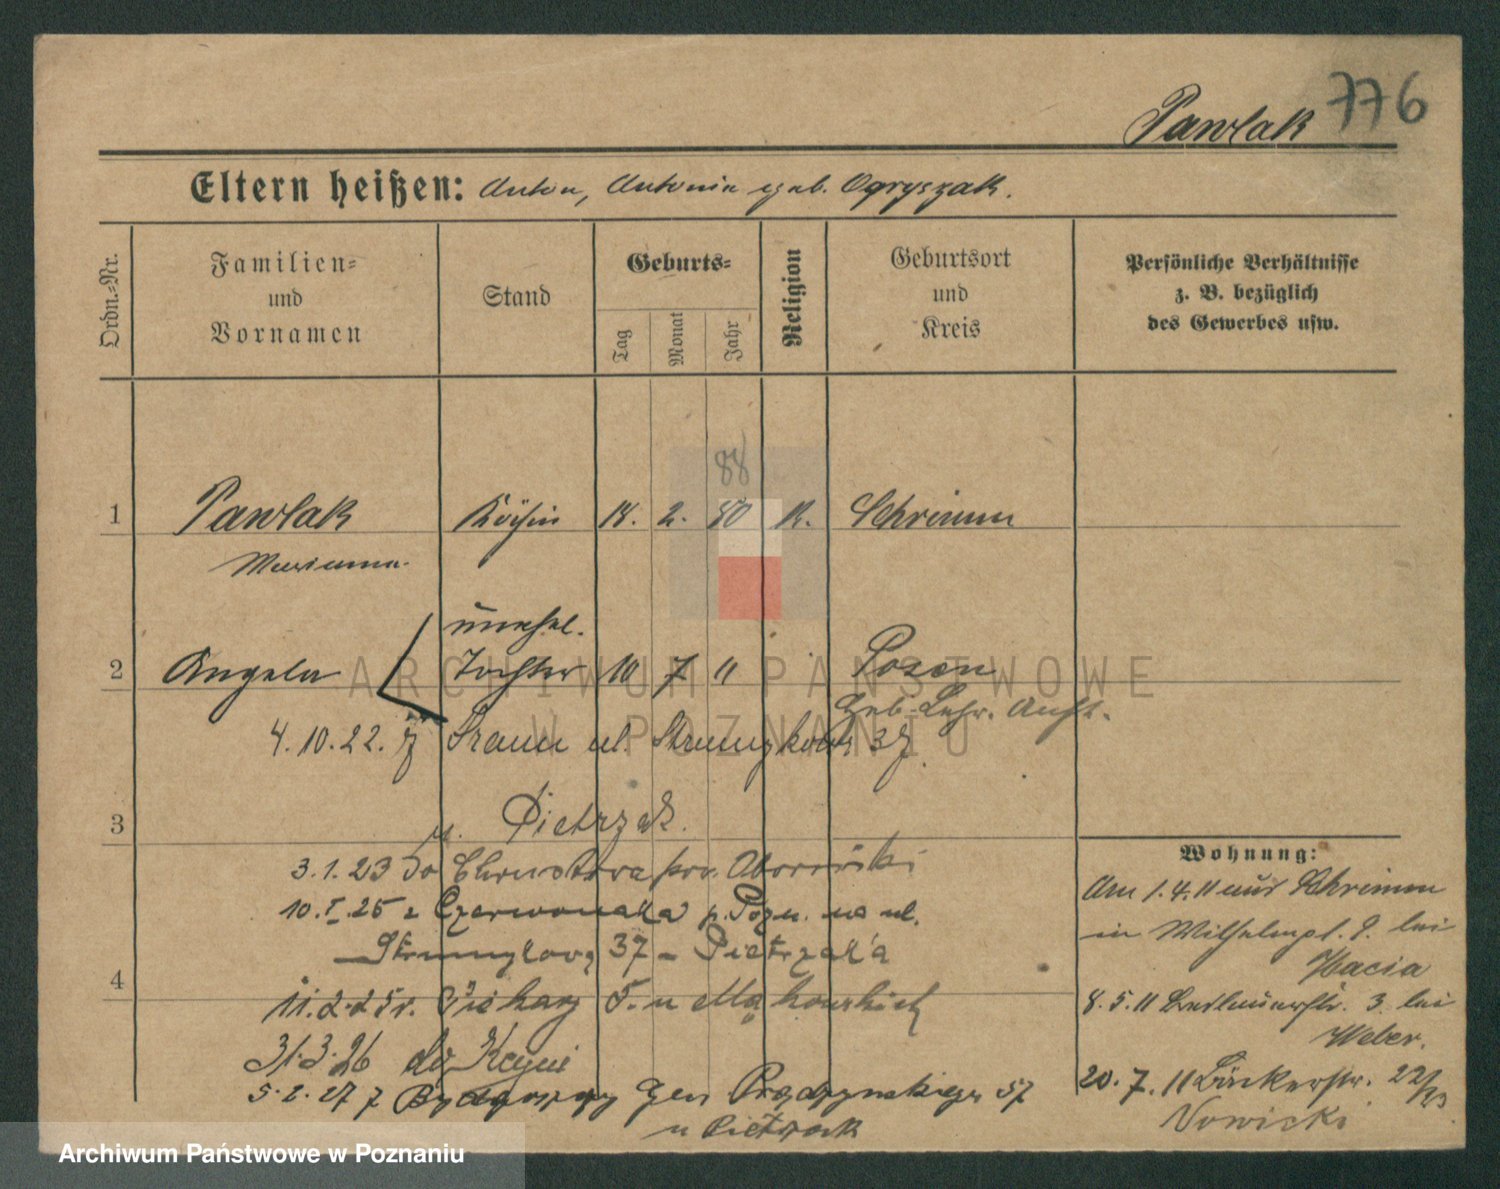 776
Pawlak
Eltern heißen: Anton, Antonie geb. Ogryszak.
Ordn.-Nr.
Familien- und Vornamen
Stand
Geburts-
Tag
Monat
Jahr
Religion
Geburtsort und Kreis
Persönliche Verhältnisse
z. B. bezüglich
des Gewerbes usw.
88
1 Pawlak Köchin 18. 2. 80 K. Schrimm
Marianna
unehel.
2 Angela Tochter 10 7 11 Posen
Geb. Lehr. Anst.
4.10.22. z Śrem ul. 37
3
u. Pietrzak.
3.1.23 do Chrustowa pow. Obornicki
10.I.25 z Czerwonaka p. Pozn. na ul.
Strumykową 37 – Pietrzaka
4
11.2.25 r. 5. u
31.3.26 do Kcyni
5.2.27 z Bydgoszczy Gen Prądzyńskiego 57
u Pietrzak
Wohnung:
Am 1.4.11 aus Schrimm
in Wilhelmpl. 9. bei
Hacia
8.5.11 3. bei
Weber.
20.7.11 Bäckerstr. 22/23
Nowicki
ARCHIWUM PAŃSTWOWE
W POZNANIU
Archiwum Państwowe w Poznaniu